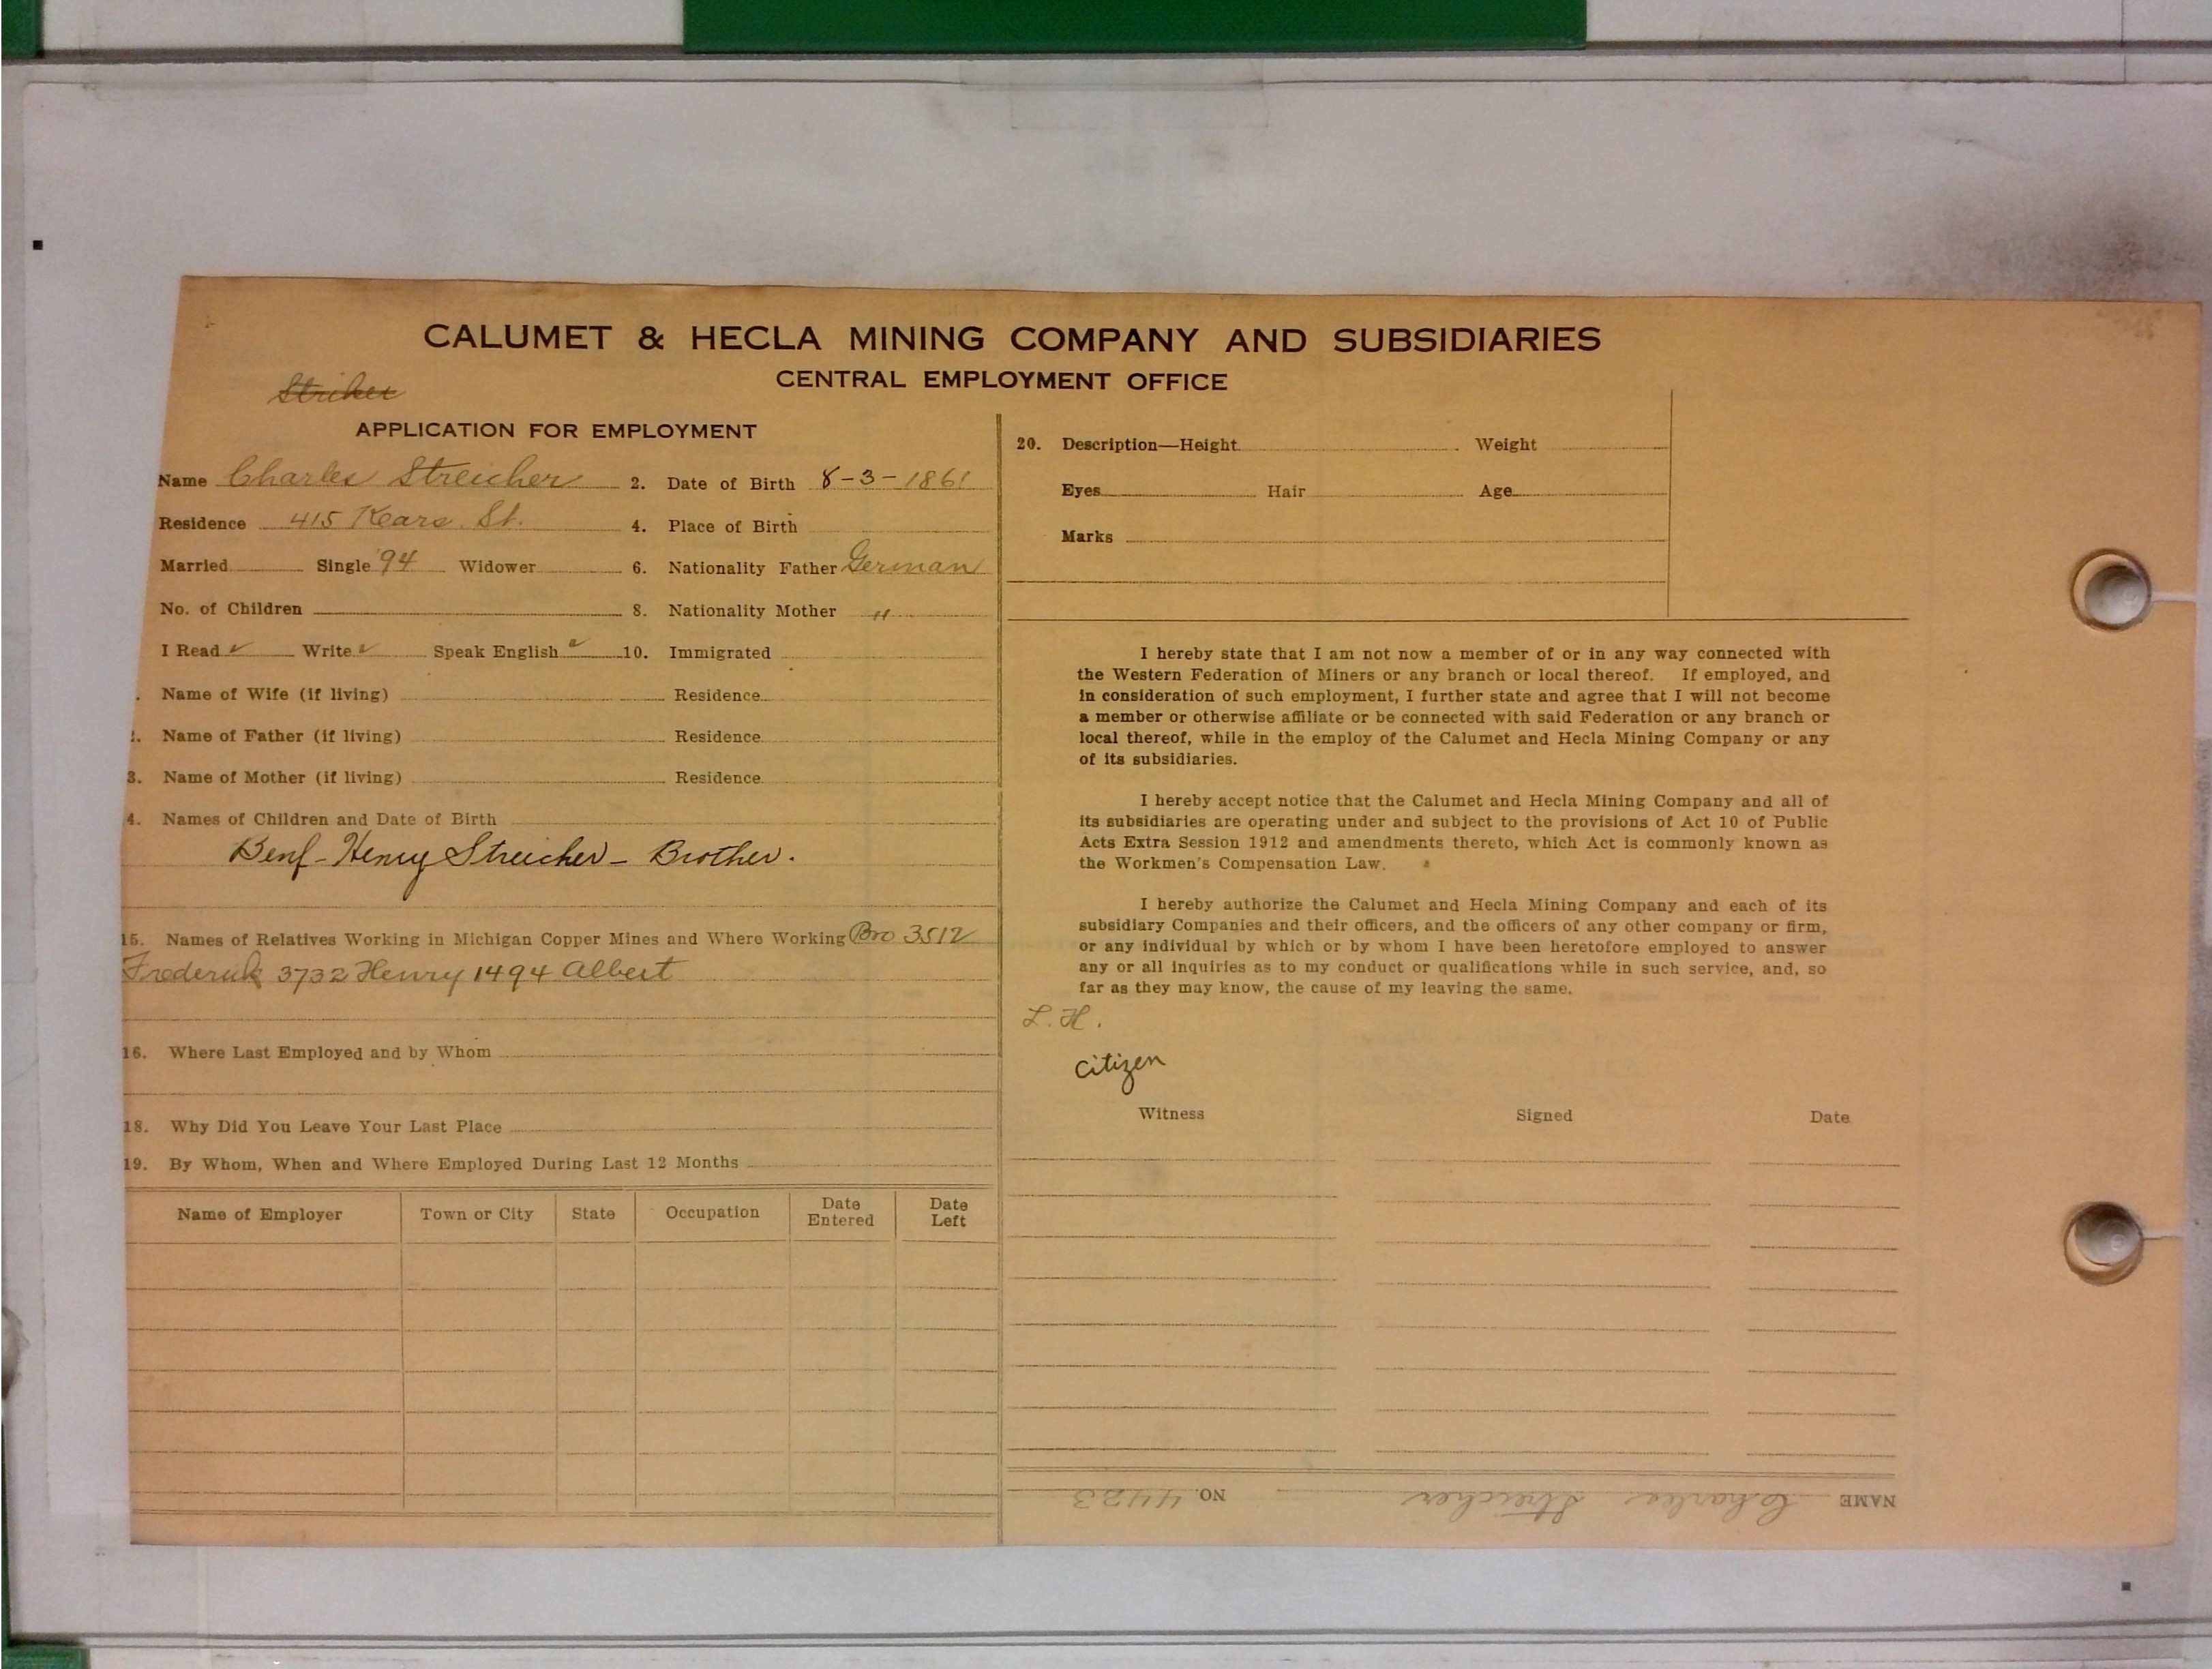 CALUMET & HECLA MINING COMPANY AND SUBSIDIARIES
CENTRAL EMPLOYMENT OFFICE
Striker
APPLICATION FOR EMPLOYMENT
Name Charles Streicher 2. Date of Birth 8-3-1861
Residence 415 Kears. St. 4. Place of Birth
Married Single '94 Widower 6. Nationality Father German
No. of Children 8. Nationality Mother "
I Read ✓ Write ✓ Speak English ✓ 10. Immigrated
. Name of Wife (if living) Residence
. Name of Father (if living) Residence
3. Name of Mother (if living) Residence
4. Names of Children and Date of Birth
Benf - Henry Streicher - Brother.
15. Names of Relatives Working in Michigan Copper Mines and Where Working Bro 3512
Frederick 3732 Henry 1494 Albert
16. Where Last Employed and by Whom
18. Why Did You Leave Your Last Place
19. By Whom, When and Where Employed During Last 12 Months
Name of Employer Town or City State Occupation Date Entered Date Left
20. Description—Height Weight
Eyes Hair Age
Marks
I hereby state that I am not now a member of or in any way connected with
the Western Federation of Miners or any branch or local thereof. If employed, and
in consideration of such employment, I further state and agree that I will not become
a member or otherwise affiliate or be connected with said Federation or any branch or
local thereof, while in the employ of the Calumet and Hecla Mining Company or any
of its subsidiaries.
I hereby accept notice that the Calumet and Hecla Mining Company and all of
its subsidiaries are operating under and subject to the provisions of Act 10 of Public
Acts Extra Session 1912 and amendments thereto, which Act is commonly known as
the Workmen's Compensation Law.
I hereby authorize the Calumet and Hecla Mining Company and each of its
subsidiary Companies and their officers, and the officers of any other company or firm,
or any individual by which or by whom I have been heretofore employed to answer
any or all inquiries as to my conduct or qualifications while in such service, and, so
far as they may know, the cause of my leaving the same.
L. H.
citizen
Witness Signed Date
NAME Charles Streicher NO. 4423